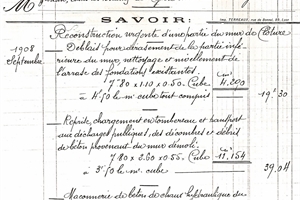 M
SAVOIR:
Imp. TERREUX
1908
Septembre
Reconstruction urgente d'une partie du mur de Clôture
Déblais pour dérasement de la partie infé-
rieure du mur, nettoyage et nivellement de
l'arase des fondations existantes.
7m80 x 1.10 x 0.50 Cube 4.200
à 4f50 le m. cube tout compris 19 " 30
Reprise, chargement en tombereau et transport
aux décharges publiques, des décombres et débris
de béton provenant du mur démoli.
7m80 x 2.60 x 0.55 Cube 11.154
à 3f50 le m. cube 39.04
Maçonnerie de béton de chaux hydraulique du